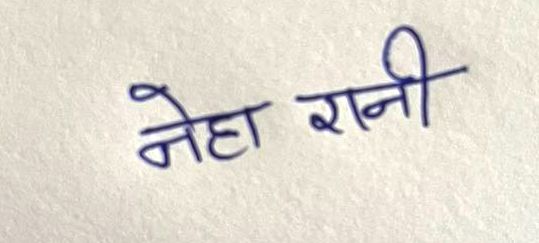 नेहा रानी